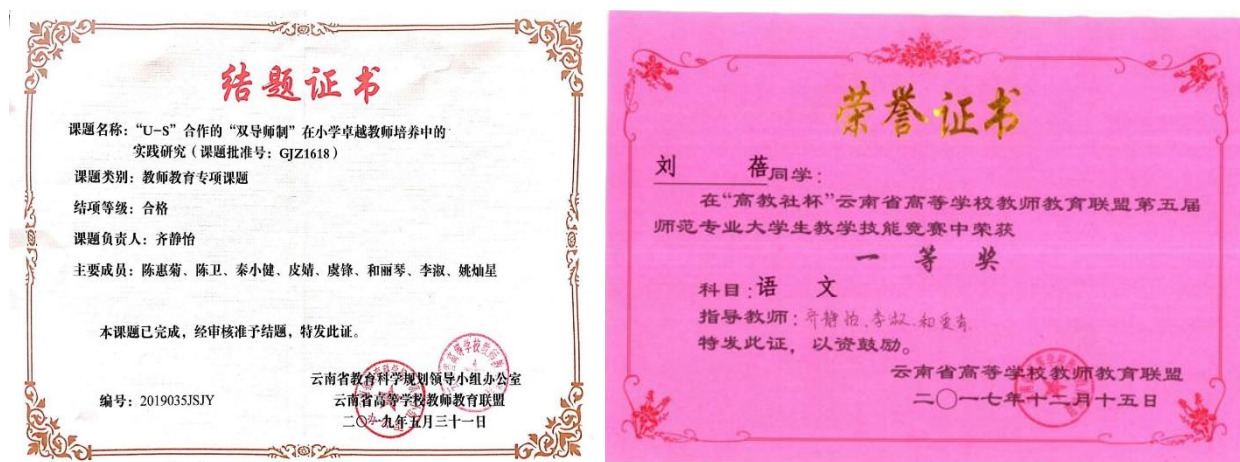 结题证书
课题名称：“U-S”合作的“双导师制”在小学卓越教师培养中的
实践研究（课题批准号：GJZ1618）
课题类别：教师教育专项课题
结项等级：合格
课题负责人：齐静怡
主要成员：陈惠菊、陈卫、秦小健、皮婧、虞锋、和丽琴、李淑、姚灿星
本课题已完成，经审核准予结题，特发此证。
云南省教育科学规划领导小组办公室
编号：2019035JSJY
云南省高等学校教师教育联盟
二〇一九年五月三十一日
荣誉证书
刘 蓓同学：
在“高教社杯”云南省高等学校教师教育联盟第五届
师范专业大学生教学技能竞赛中荣获
一等奖
科目：语 文
指导教师：齐静怡、李淑、和爱青
特发此证，以资鼓励。
云南省高等学校教师教育联盟
二〇一七年十二月十五日